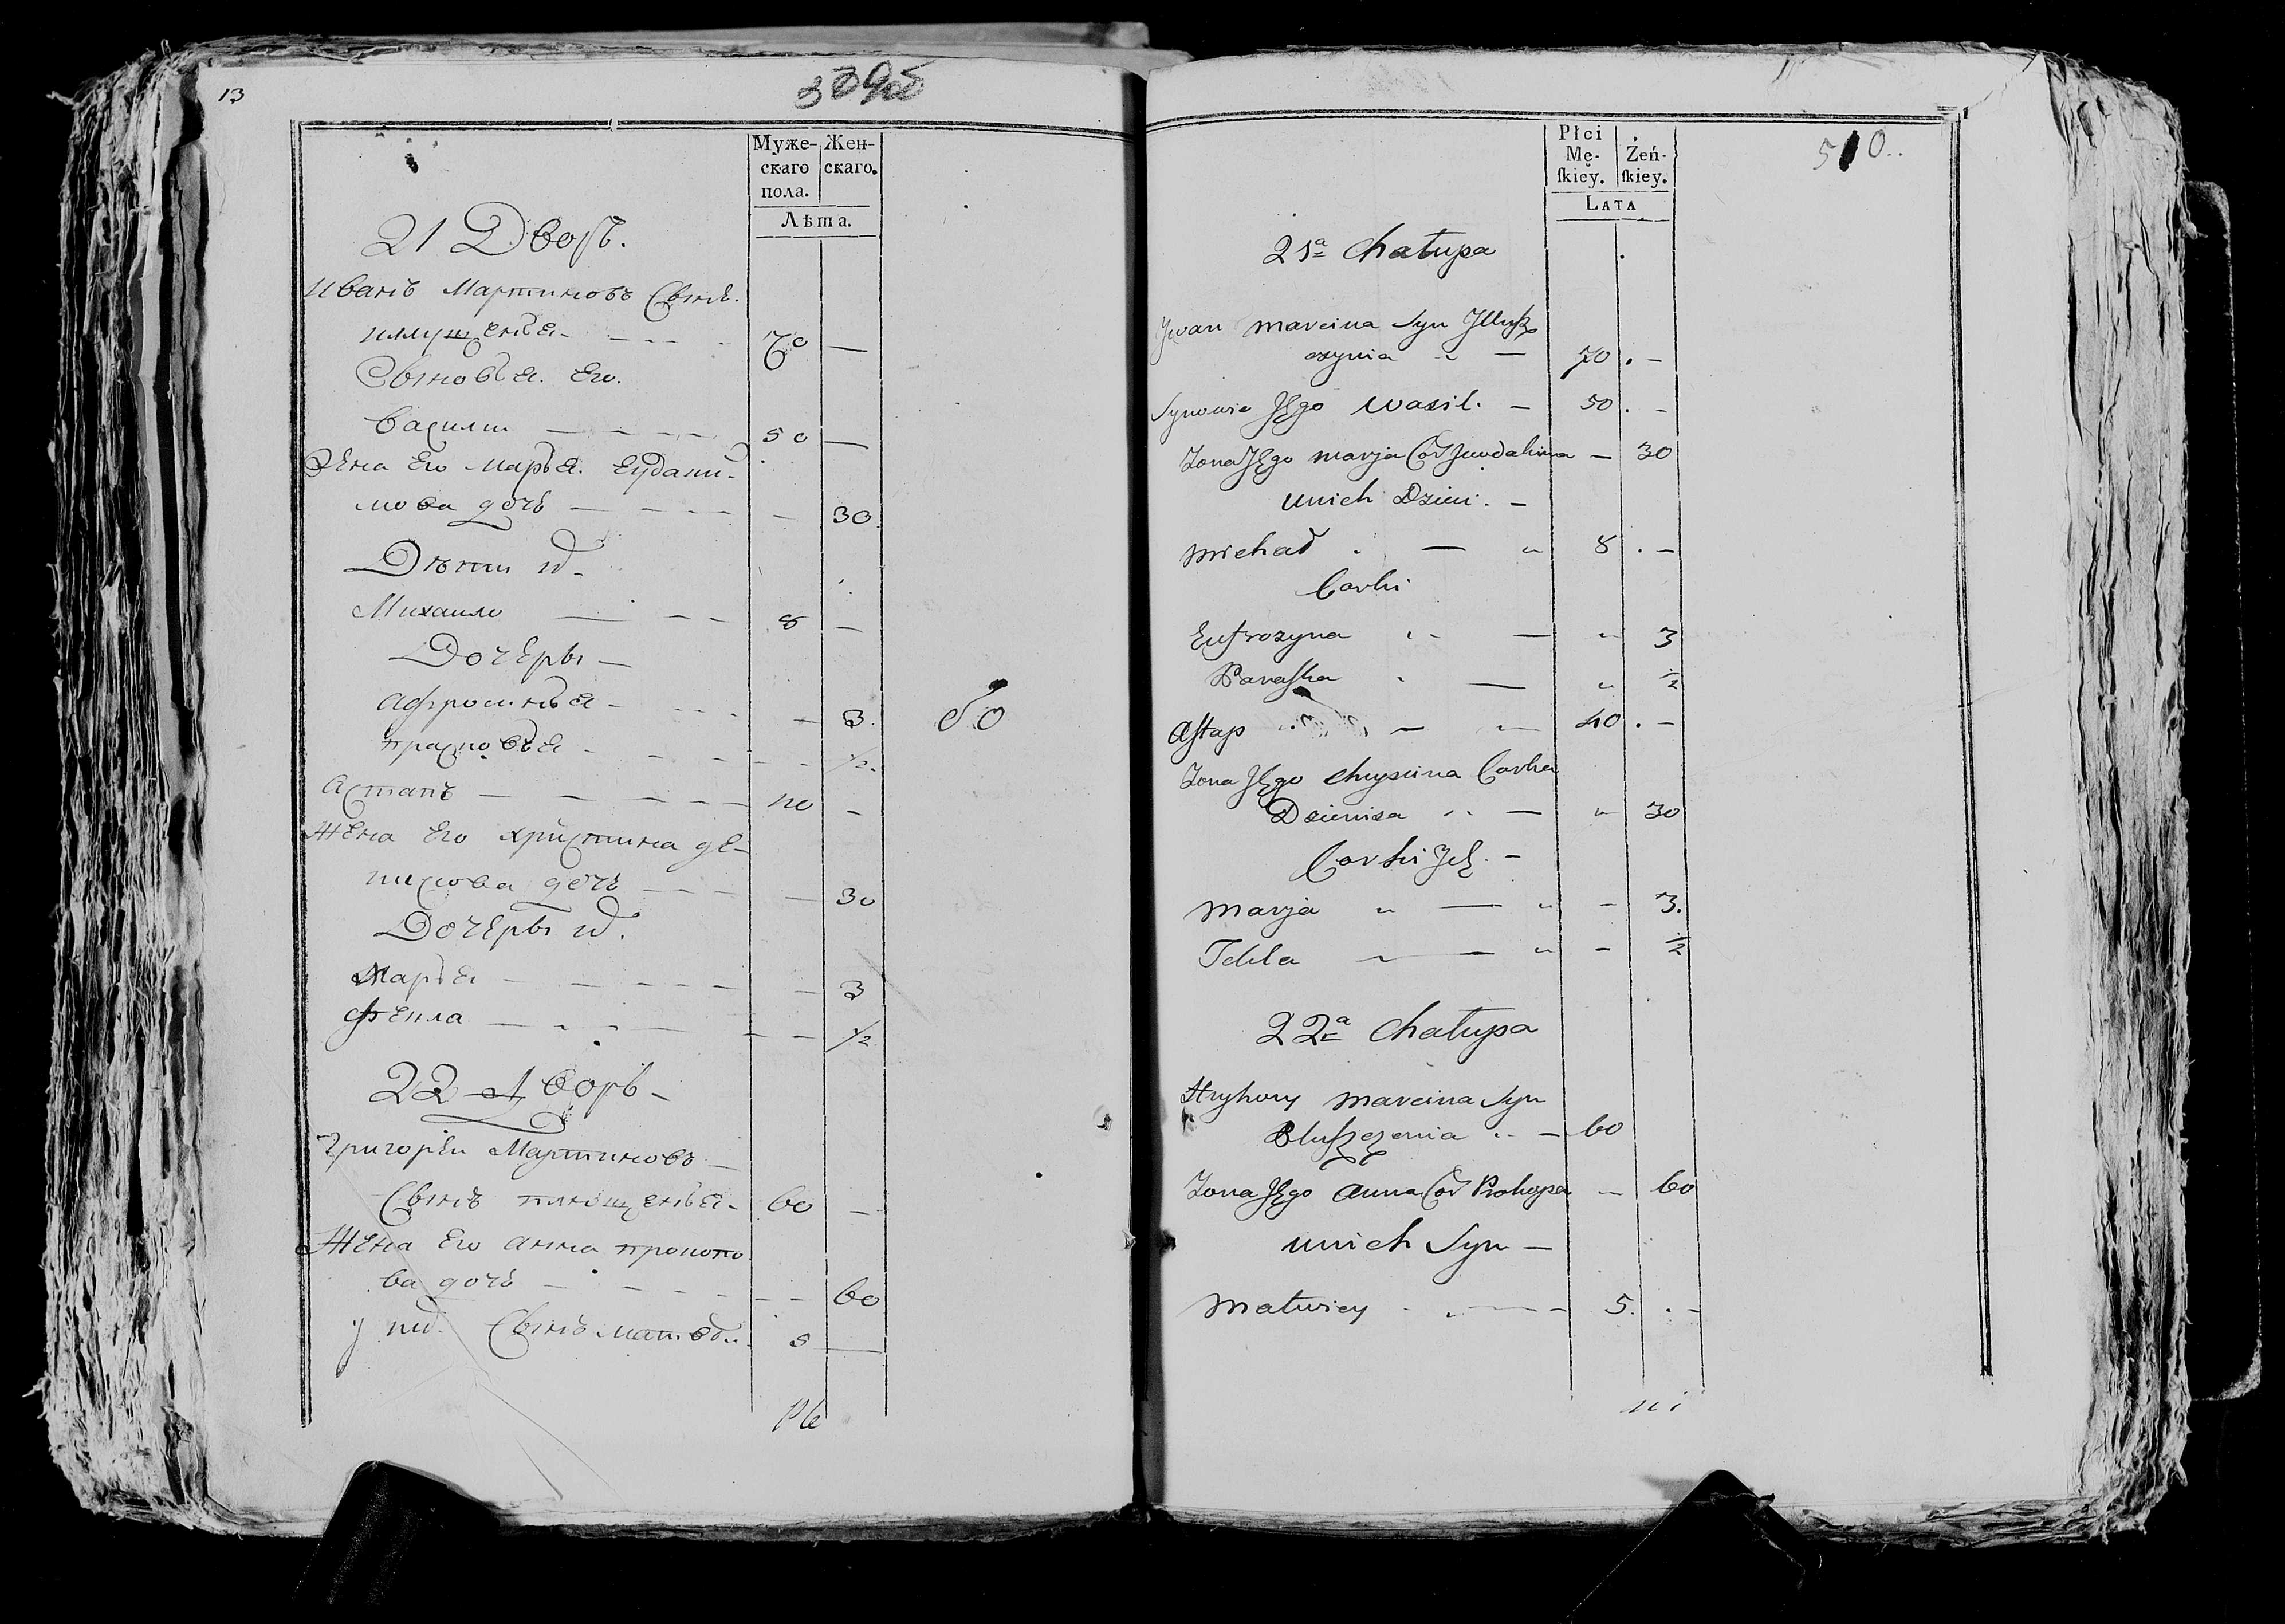 13
Муже-
скаго
пола.
Жен-
скаго.
Лѣта.
21 Дворъ.
Иванъ Мартиновъ Сынъ
70 —
Сыновья Его.
Василы — — — 50 —
Жена Его Марья
мова дочь — — — 30
Дѣти их.
Михаило — — — 8 —
Дочеры —
Афросинья - — 3.
Прасковья - — — 1/2.
Астапъ — — — — 40 -
Жена Его Христина де-
нисова дочь — — — 30
Дочеры их.
Марья — — — — 3
Фекла — — — — 1/2
22 Дворъ -
Григорѣи Мартиновъ —
Сынъ плющенья - 60 —
Жена Его Анна прокопо
ва дочь — — — 60
у них Сынъ 5 —
50
Płci
Mę-
ſkiey.
Żeń-
ſkiey.
LATA
510..
21a Chałupa
Jwan Marcina Syn
70 . -
Synowie Jęgo Wasil. — 50 . -
Zona Jęgo Marja Cor — 30
unich Dzieci. —
Michał . — 8 . —
Corki
Eufrozyna — 3
Paraſka — 1/2
Aſtap — 40 . —
Zona Jęgo Chrysćina Corka
Dzienisa — 30
Corki Jch. —
Marja — - 3.
Tekla — - 1/2
22a Chałupa
Hryhory Marcina Syn
Pluſzczenia — 60
Zona Jęgo Anna Cor Prokopa — 60
unich Syn —
Matwiey — 5. . -